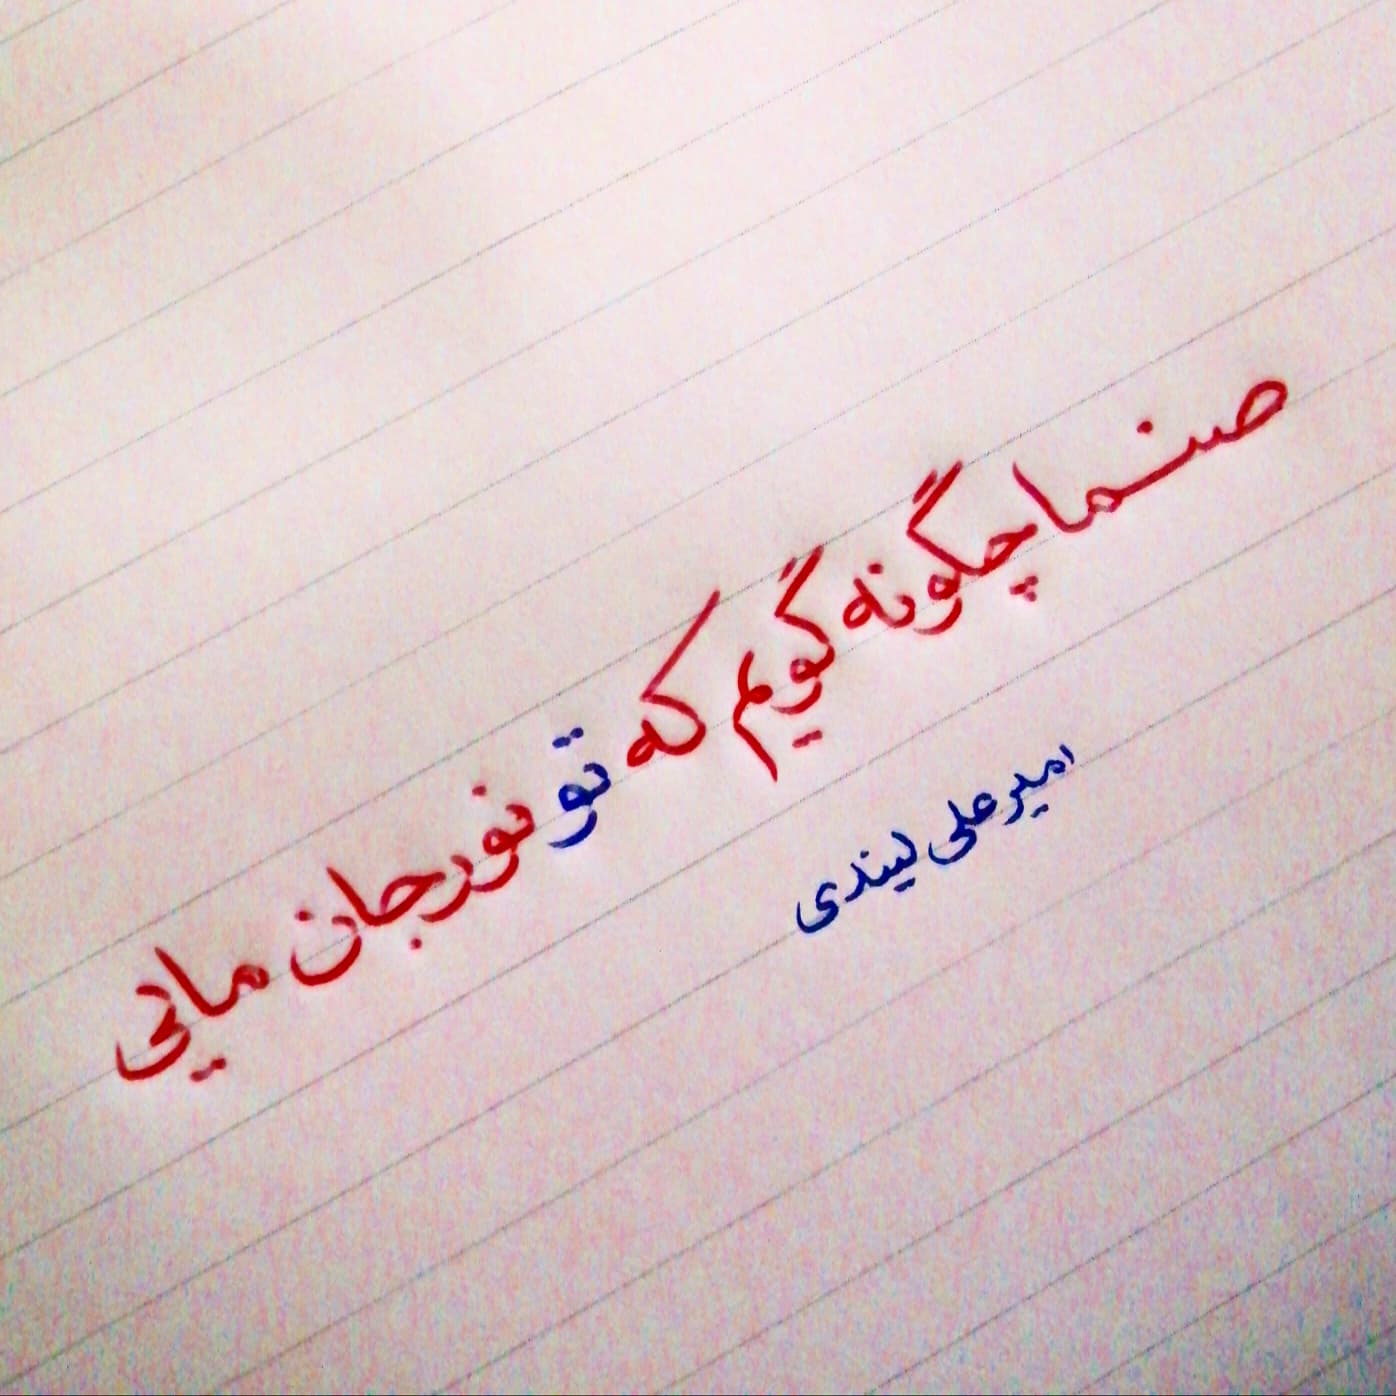 صنما چگونه گویم که تو نور جان مایی
امیرعلی لیندی